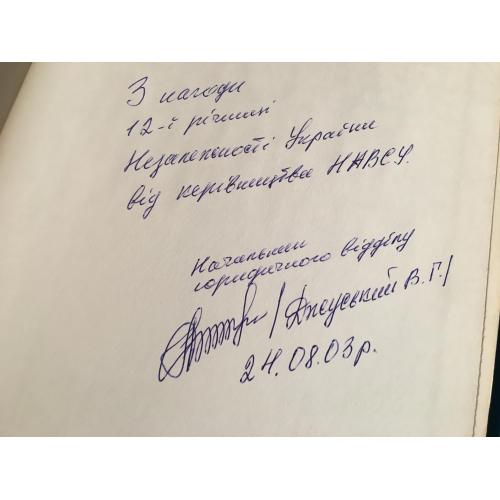 З нагоди
12-ї річниці
Незалежності України
від керівництва НАВСУ.
Начальник
юридичного відділу
В.Г./
24.08.03р.